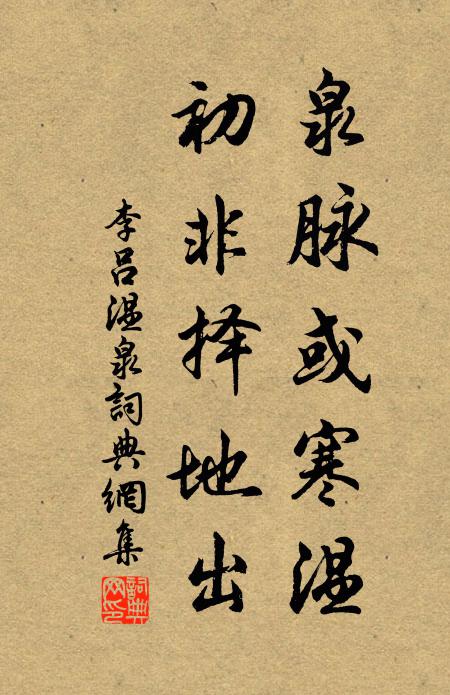 泉脉或寒温
初非择地出
李吕温泉詞典網集
詞典网印